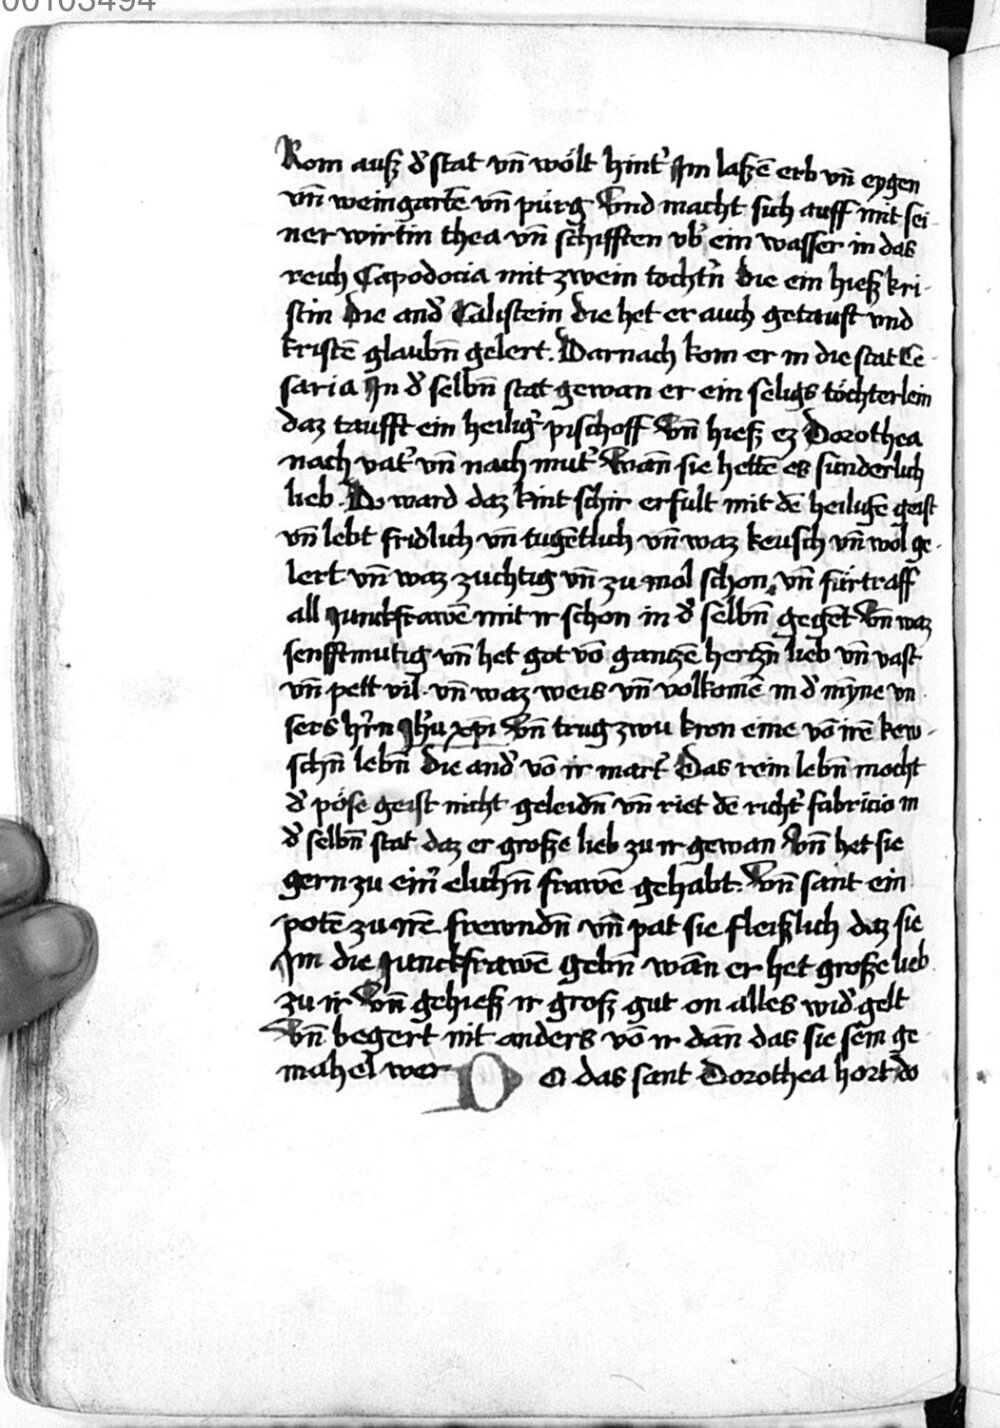 00103494
Rom ausz d' stat vn̄ wölt hint' Im laszē erb vn̄ eygen
vn̄ weingartē vn̄ pürg Vnd macht sich auff mit sei-
ner wirtin thea vn̄ schifften vb' ein wasser in das
reich Capodocia mit zwein tocht'n die ein hiesz kri-
stin Die and' Calistein die het er auch getauft vnd
kristē glaubn̄ gelert. Darnach kom er in die stat Ce-
saria In d' selbn̄ stat gewan er ein seligs töchterlein
daz taufft ein heilig' pischoff Vn̄ hiesz ez Dorothea
nach vat' vn̄ nach mut' Wan̄ sie hettē es sunderlich
lieb. Do ward daz kint schir erfult mit dē heiligē geist
vn̄ lebt fridlich vn̄ tugētlich vn̄ waz keusch vn̄ wol ge-
lert vn̄ waz zuchtig vn̄ zu mol schon, vn̄ fürtraff
all Junckfrawē mit ir schon in d' selbn̄ gegēt Vn̄ waz
senfftmutig vn̄ het got vō gantzē hertzn̄ lieb vn̄ vast
vn̄ pett vil vn̄ waz weis vn̄ volkomē in d' mȳne vn
sers h'rn Jh'u xp̄i Vn̄ trug zwu kron eine vō irē kew-
schn̄ lebn̄ Die and' vō ir mart' Das rein lebn̄ mocht
d' pöse geist nicht geleidn̄ vn̄ riet dē richt' fabricio in
d' selbn̄ stat daz er grosze lieb zu ir gewan Vn̄ het sie
gern zu ein' elichn̄ frawē gehabt. Vn̄ sant ein
potē zu irē frewndn̄ vn̄ pat sie fleiszlich daz sie
Im die Junckfrawē gebn̄ wan̄ er het grosze lieb
zu ir Vn̄ gehiesz ir grosz gut on alles wid'gelt
Vn̄ begert nit anders vō ir dan̄ das sie sein ge
mahel wer Do das sant Dorothea hort do